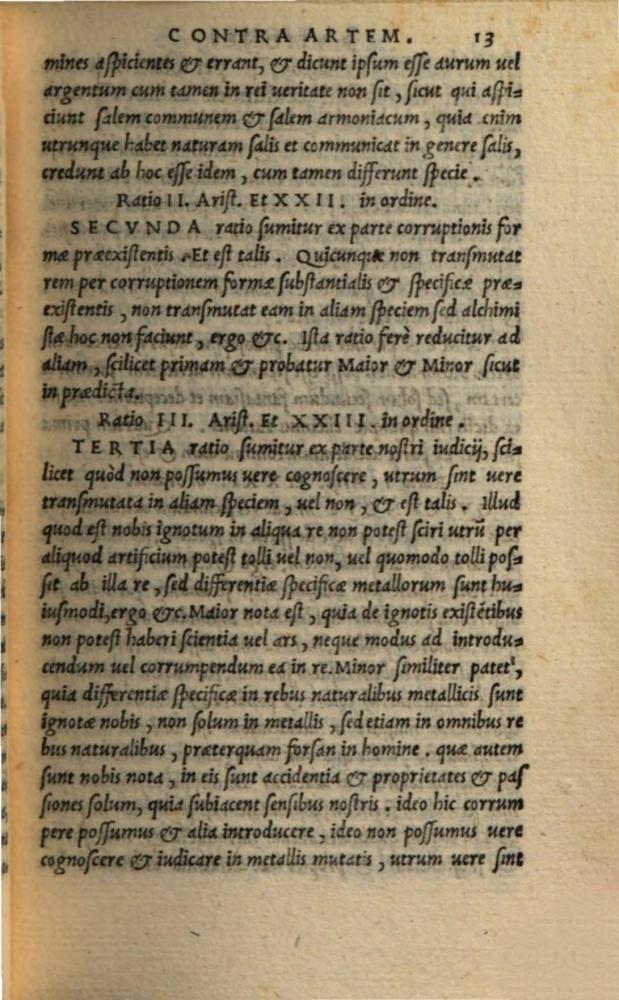 CONTRA ARTEM. 13
mines aſpicientes & errant, & dicunt ipſum eſſe aurum uel
argentum cum tamen in rei ueritate non ſit, ſicut qui aſpi=
ciunt ſalem communem & ſalem armoniacum, quia enim
utrunque habet naturam ſalis et communicat in genere ſalis,
credunt ab hoc eſſe idem, cum tamen differunt ſpecie.
Ratio II. Ariſt. Et XXII. in ordine.
SECVNDA ratio ſumitur ex parte corruptionis for
mæ præexiſtentis. Et est talis. Quicunque non tranſmutat
rem per corruptionem formæ ſubſtantialis & ſpecificæ præ=
exiſtentis, non tranſmutat eam in aliam ſpeciem ſed alchimi
ſtæ hoc non faciunt, ergo &c. Iſta ratio ferè reducitur ad
aliam, ſcilicet primam & probatur Maior & Minor ſicut
in prædicta.
Ratio III. Ariſt. Et XXIII. in ordine.
TERTIA ratio ſumitur ex parte noſtri iudicij, ſci=
licet quòd non poſſumus uere cognoſcere, utrum ſint uere
tranſmutata in aliam ſpeciem, uel non, & est talis. Illud
quod est nobis ignotum in aliqua re non potest ſciri utrũ per
aliquod artificium potest tolli uel non, uel quomodo tolli poſ=
ſit ab illa re, ſed differentiæ ſpecificæ metallorum ſunt hu=
iuſmodi, ergo &c. Maior nota est, quia de ignotis exiſtẽtibus
non potest haberi ſcientia uel ars, neque modus ad introdu=
cendum uel corrumpendum ea in re. Minor ſimiliter patet,
quia differentiæ ſpecificæ in rebus naturalibus metallicis ſunt
ignotæ nobis, non ſolum in metallis, ſed etiam in omnibus re
bus naturalibus, præterquam forſan in homine. quæ autem
ſunt nobis nota, in eis ſunt accidentia & proprietates & paſ
ſiones ſolum, quia ſubiacent ſenſibus noſtris. ideo hic corrum
pere poſſumus & alia introducere, ideo non poſſumus uere
cognoſcere & iudicare in metallis mutatis, utrum uere ſint